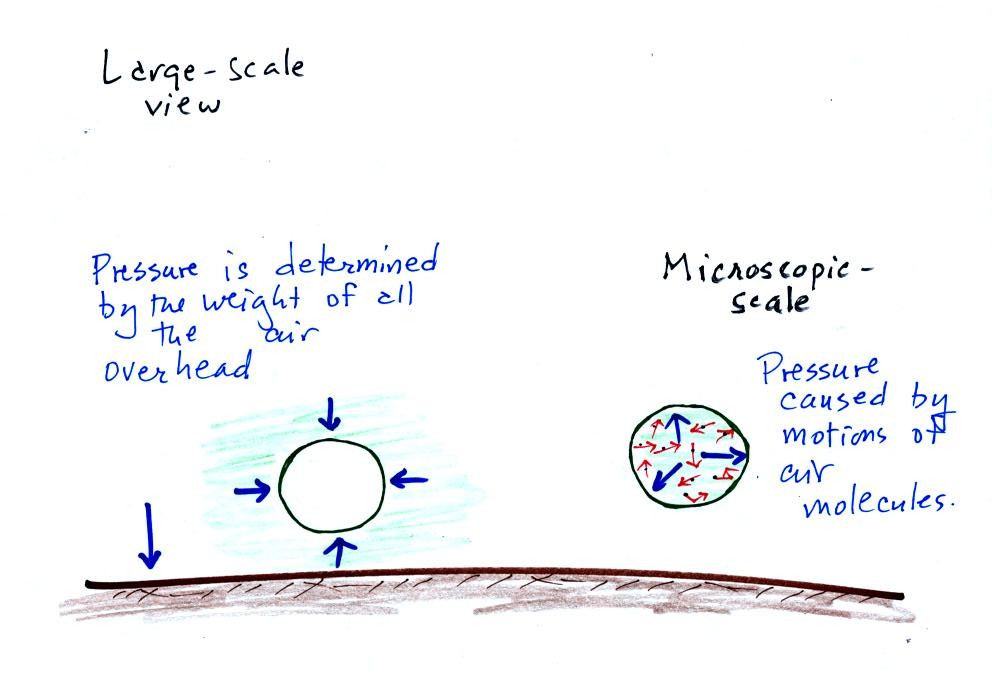 Large-scale
view
Pressure is determined
by the weight of all
the air
overhead
Microscopic-
scale
Pressure
caused by
motions of
air
molecules.